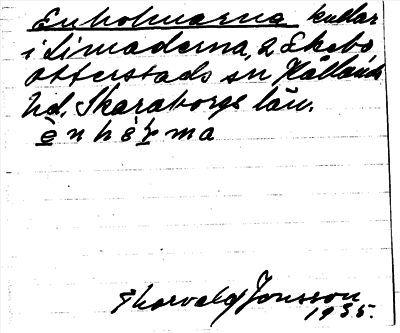 Enholmarna kullar
i Simaderna, 2 Ekebo
Otterstads sn Kållands
hd. Skaraborgs län.
è n h è r m a
Thorvald Jonsson
1935.